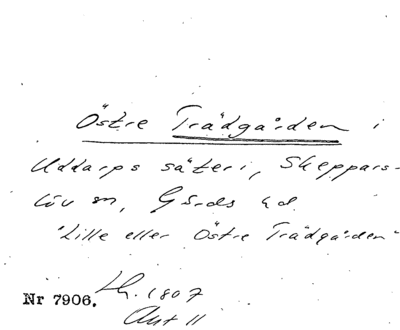 Östre Trädgården i
Uddarps säteri, Skeppars-
löv sn, Gärds hd.
"Lille eller Östre Trädgården"
Nr 7906. Lh. 1807
Akt 11